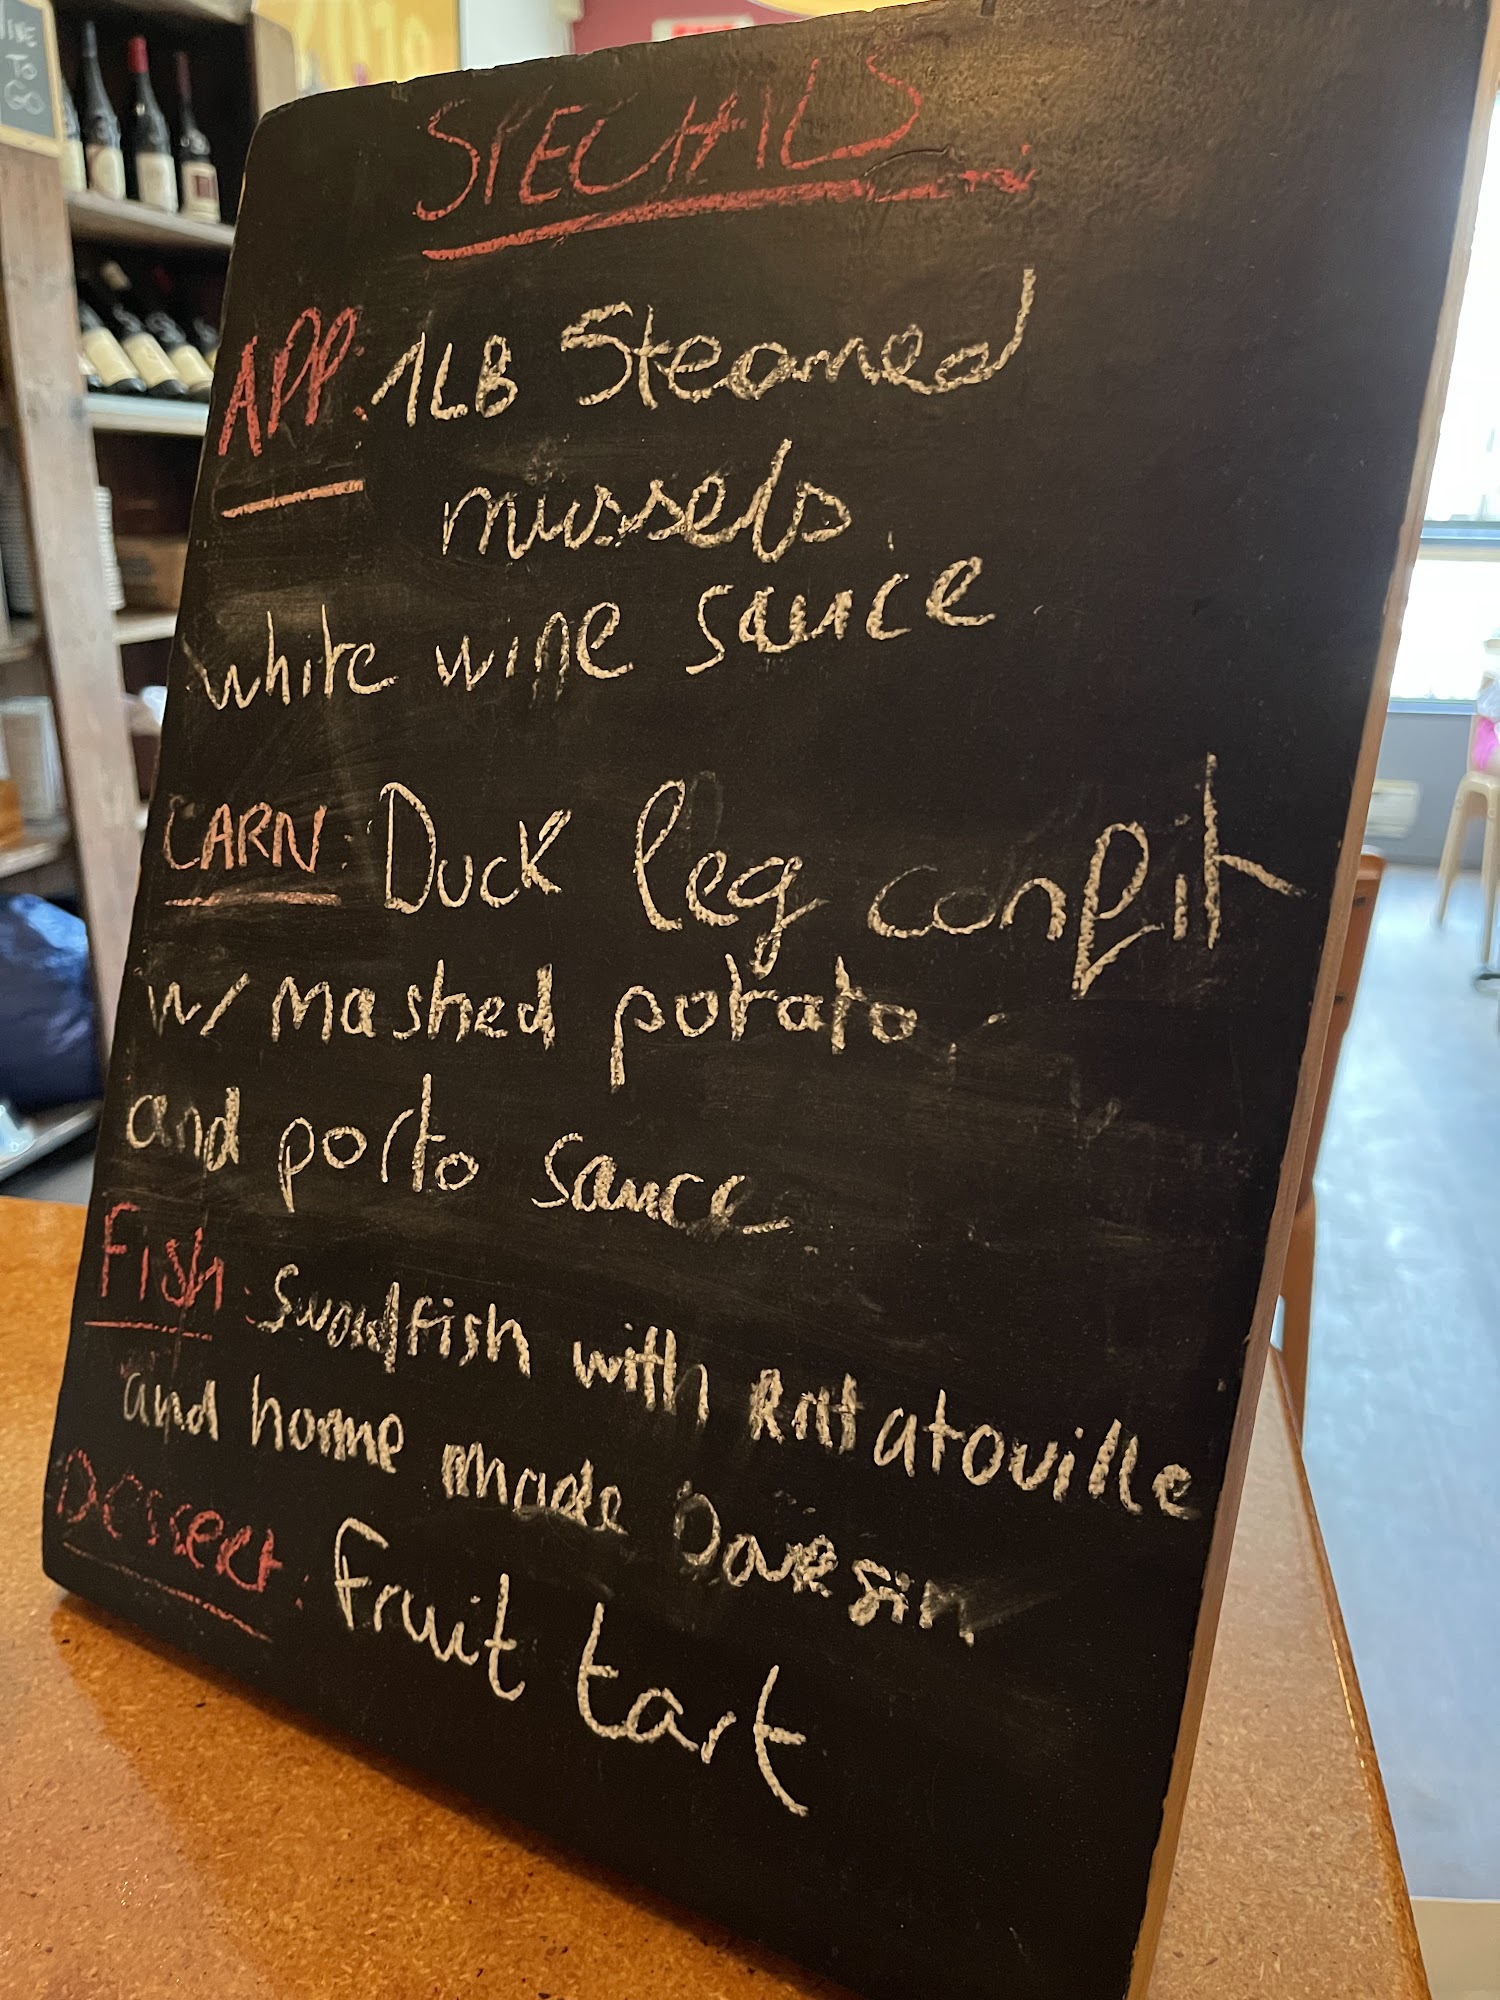 WINE
TO
GO
2018
SPECIALS
APP: 1LB Steamed
mussels.
white wine sauce
CARN: Duck leg confit
w/ mashed potato,
and porto sauce
Fish: Swordfish with Ratatouille
and home made
Dessert: Fruit tart